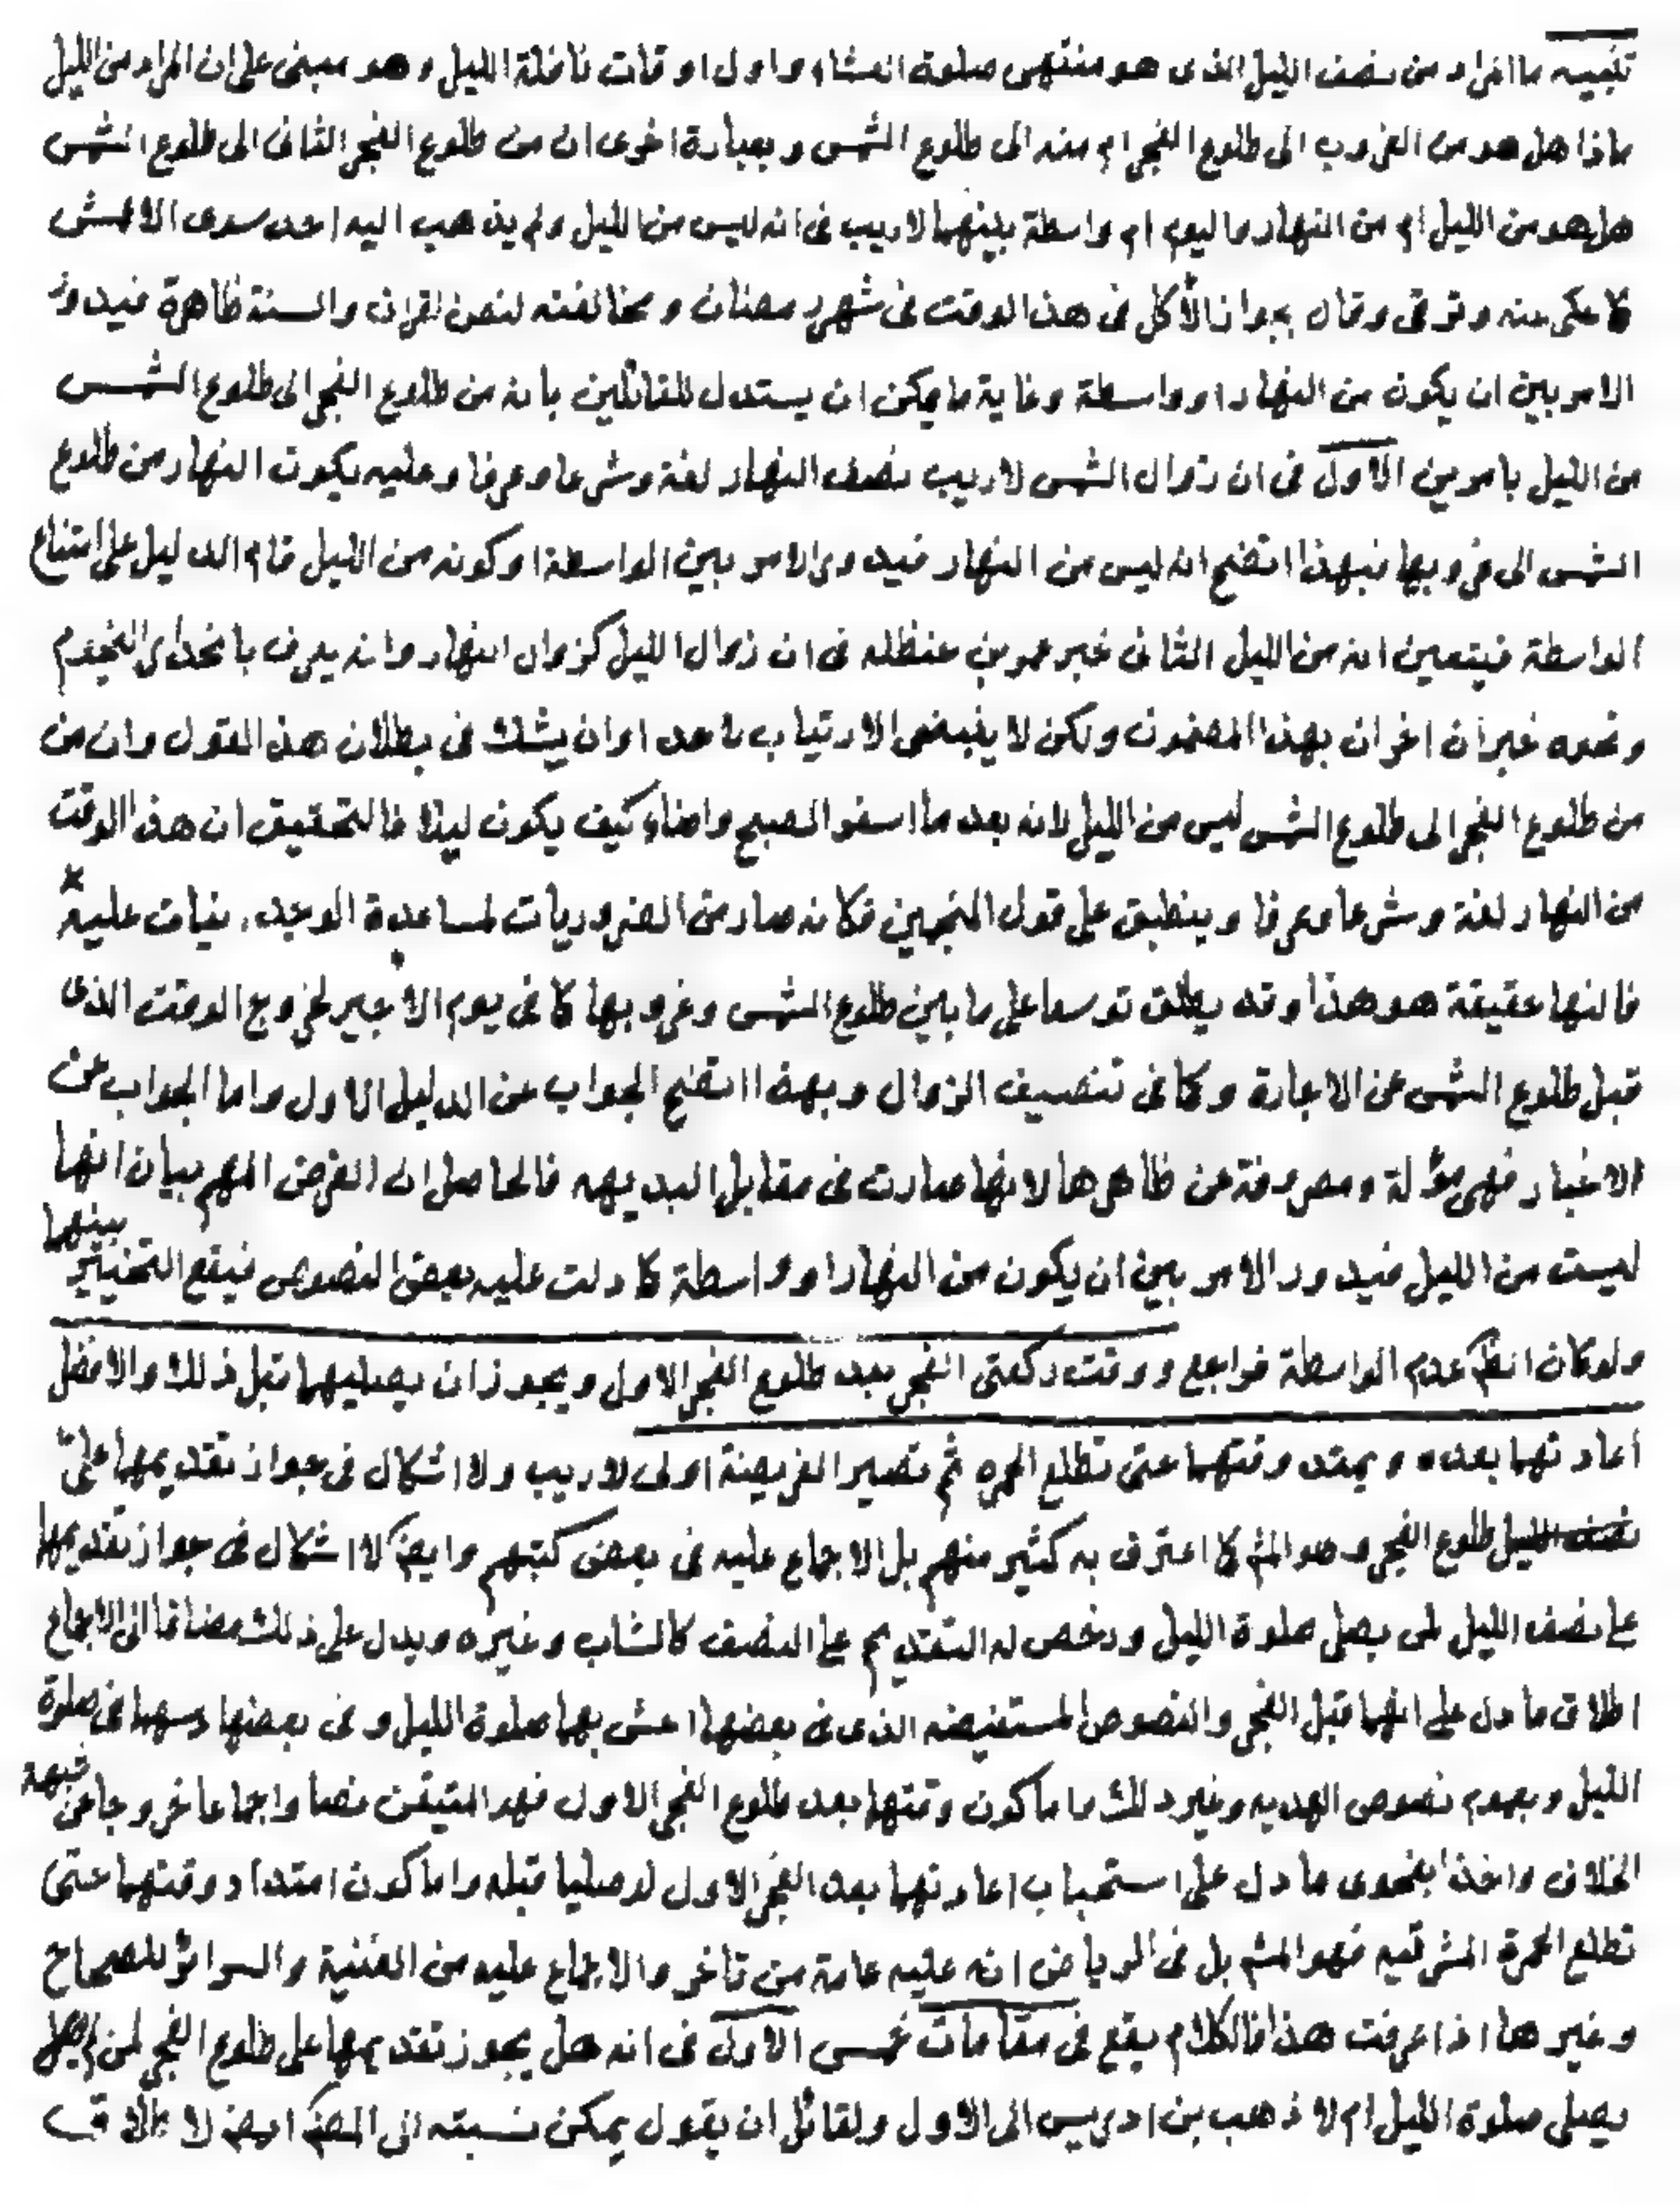 تنبيه ما المراد من نصف الليل الذى هو منتهى صلوة العشاء واول اوقات نافلة الليل وهو مبنى على ان المراد من الليل
ماذا هل هو من الغروب الى طلوع الفجر ام منه الى طلوع الشمس وبعبارة اخرى ان من طلوع الفجر الثانى الى طلوع الشمس
هل هو من الليل ام من النهار واليوم ام واسطة بينهما لاريب فى انه ليس من الليل ولم يذهب اليه احد سوى الاعمش
كا حكى عنه وترقى وقال بجواز الأكل فى هذا الوقت فى شهر رمضان ومخالفته لنص القران والسنة ظاهرة فيدور
الامر بين ان يكون من النهار او واسطة وغاية ما يمكن ان يستدل للقائلين بانه من طلوع الفجر الى طلوع الشمس
من الليل بامرين الاول فى ان زوال الشمس لاريب نصف النهار لغة وشرعا وعرفا وعليه يكون النهار من طلوع
الشمس الى غروبها فبهذا اتضح انه ليس من النهار فيدور الامر بين الواسطة او كونه من الليل قام الدليل على امتناع
الواسطة فيتعين انه من الليل الثانى خبر عمر بن حنظله فى ان زوال الليل كزوال النهار وانه يعرف بانحدار النجوم
ونحوه خبران اخران بهذا المضمون ولكن لا ينبغى الارتياب لاحد او ان يشك فى بطلان هذا القول وان من
من طلوع الفجر الى طلوع الشمس ليس من الليل لانه بعد ما اسفر الصبح واضاء كيف يكون ليلا فالتحقيق ان هذا الوقت
من النهار لغة وشرعا وعرفا وينطبق على قول المنجمين فكانه صار من الضروريات لمساعدة الوجد عليه
فالنها حقيقة هو هذا وقد يطلق توسعا على ما بين طلوع الشمس وغروبها كا فى يوم الاجير لخروج الوقت الذى
قبل طلوع الشمس عن الاجارة وكا فى تنصيف الزوال وبهذا اتضح الجواب عن الدليل الاول واما الجواب عن
الاخبار فهى مؤلة ومصروفة عن ظاهرها لانها صارت فى مقابل البديهه فالحاصل ان الغرض المهم بيان انها
ليست من الليل فيدور الامر بين ان يكون من النهار او واسطة كا دلت عليه بعض النصوص فيقع التخيير بينهما
ولو كان انظر عدم الواسطة فراجع ووقت ركعتى الفجر بعد طلوع الفجر الاول ويجوز ان يصليهما قبل ذلك والافضل
اعادتهما بعده ويمتد وقتهما حتى تطلع الحمره ثم تصير الفريضة اولى لاريب ولا اشكال فى جواز تقديمهما على
طلوع الفجر وهو المش كا اعترف به كثير منهم بل الاجماع عليه فى بعض كتبهم وايض لا اشكال فى جواز تقديمهما
على نصف الليل لمن يصلى صلوة الليل ورخص له التقديم على النصف كالشاب وغيره ويدل على ذلك مضافا الى الاجماع
اطلاق ما دل على انهما قبل الفجر والنصوص المستفيضه الذى فى بعضها احش بهما صلوة الليل وفى بعضها دسهما فى صلوة
الليل وبعموم نصوص الهديه وغير ذلك اما كون وقتهما بعد طلوع الفجر الاول فهو المتيقن نصا واجماعا خروجا عن شبهة
الخلاف واخذا بفحوى ما دل على استحباب اعادتهما بعد الفجر الاول لو صليا قبله واما كون امتداد وقتهما حتى
تطلع الحمرة المشرقيه فهو المش بل فى الرياض ان عليه عامة من تاخر والاجماع عليه من الغنية والسرائر للصحاح
وغيرها اذا عرفت هذا فالكلام يقع فى مقامات خمس الاول فى انه هل يجوز تقديمهما على طلوع الفجر لمن لم يصل
يصلى صلوة الليل ام لا ذهب بن ادريس الى الاول ولقائل ان يقول يمكن نسبته الى المص ايض لاطلاق